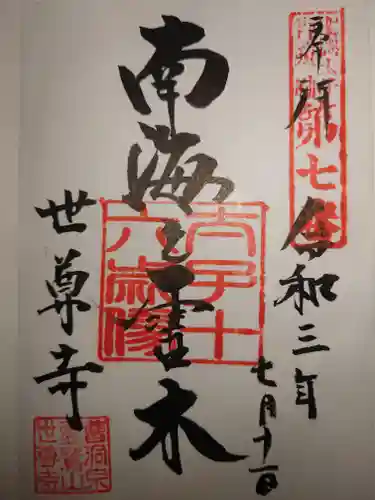 奉拝
第七番
令和三年
七月十一日
南海之霊木
太子十
六歳像
世尊寺
曹洞宗
霊鷲山
世尊寺